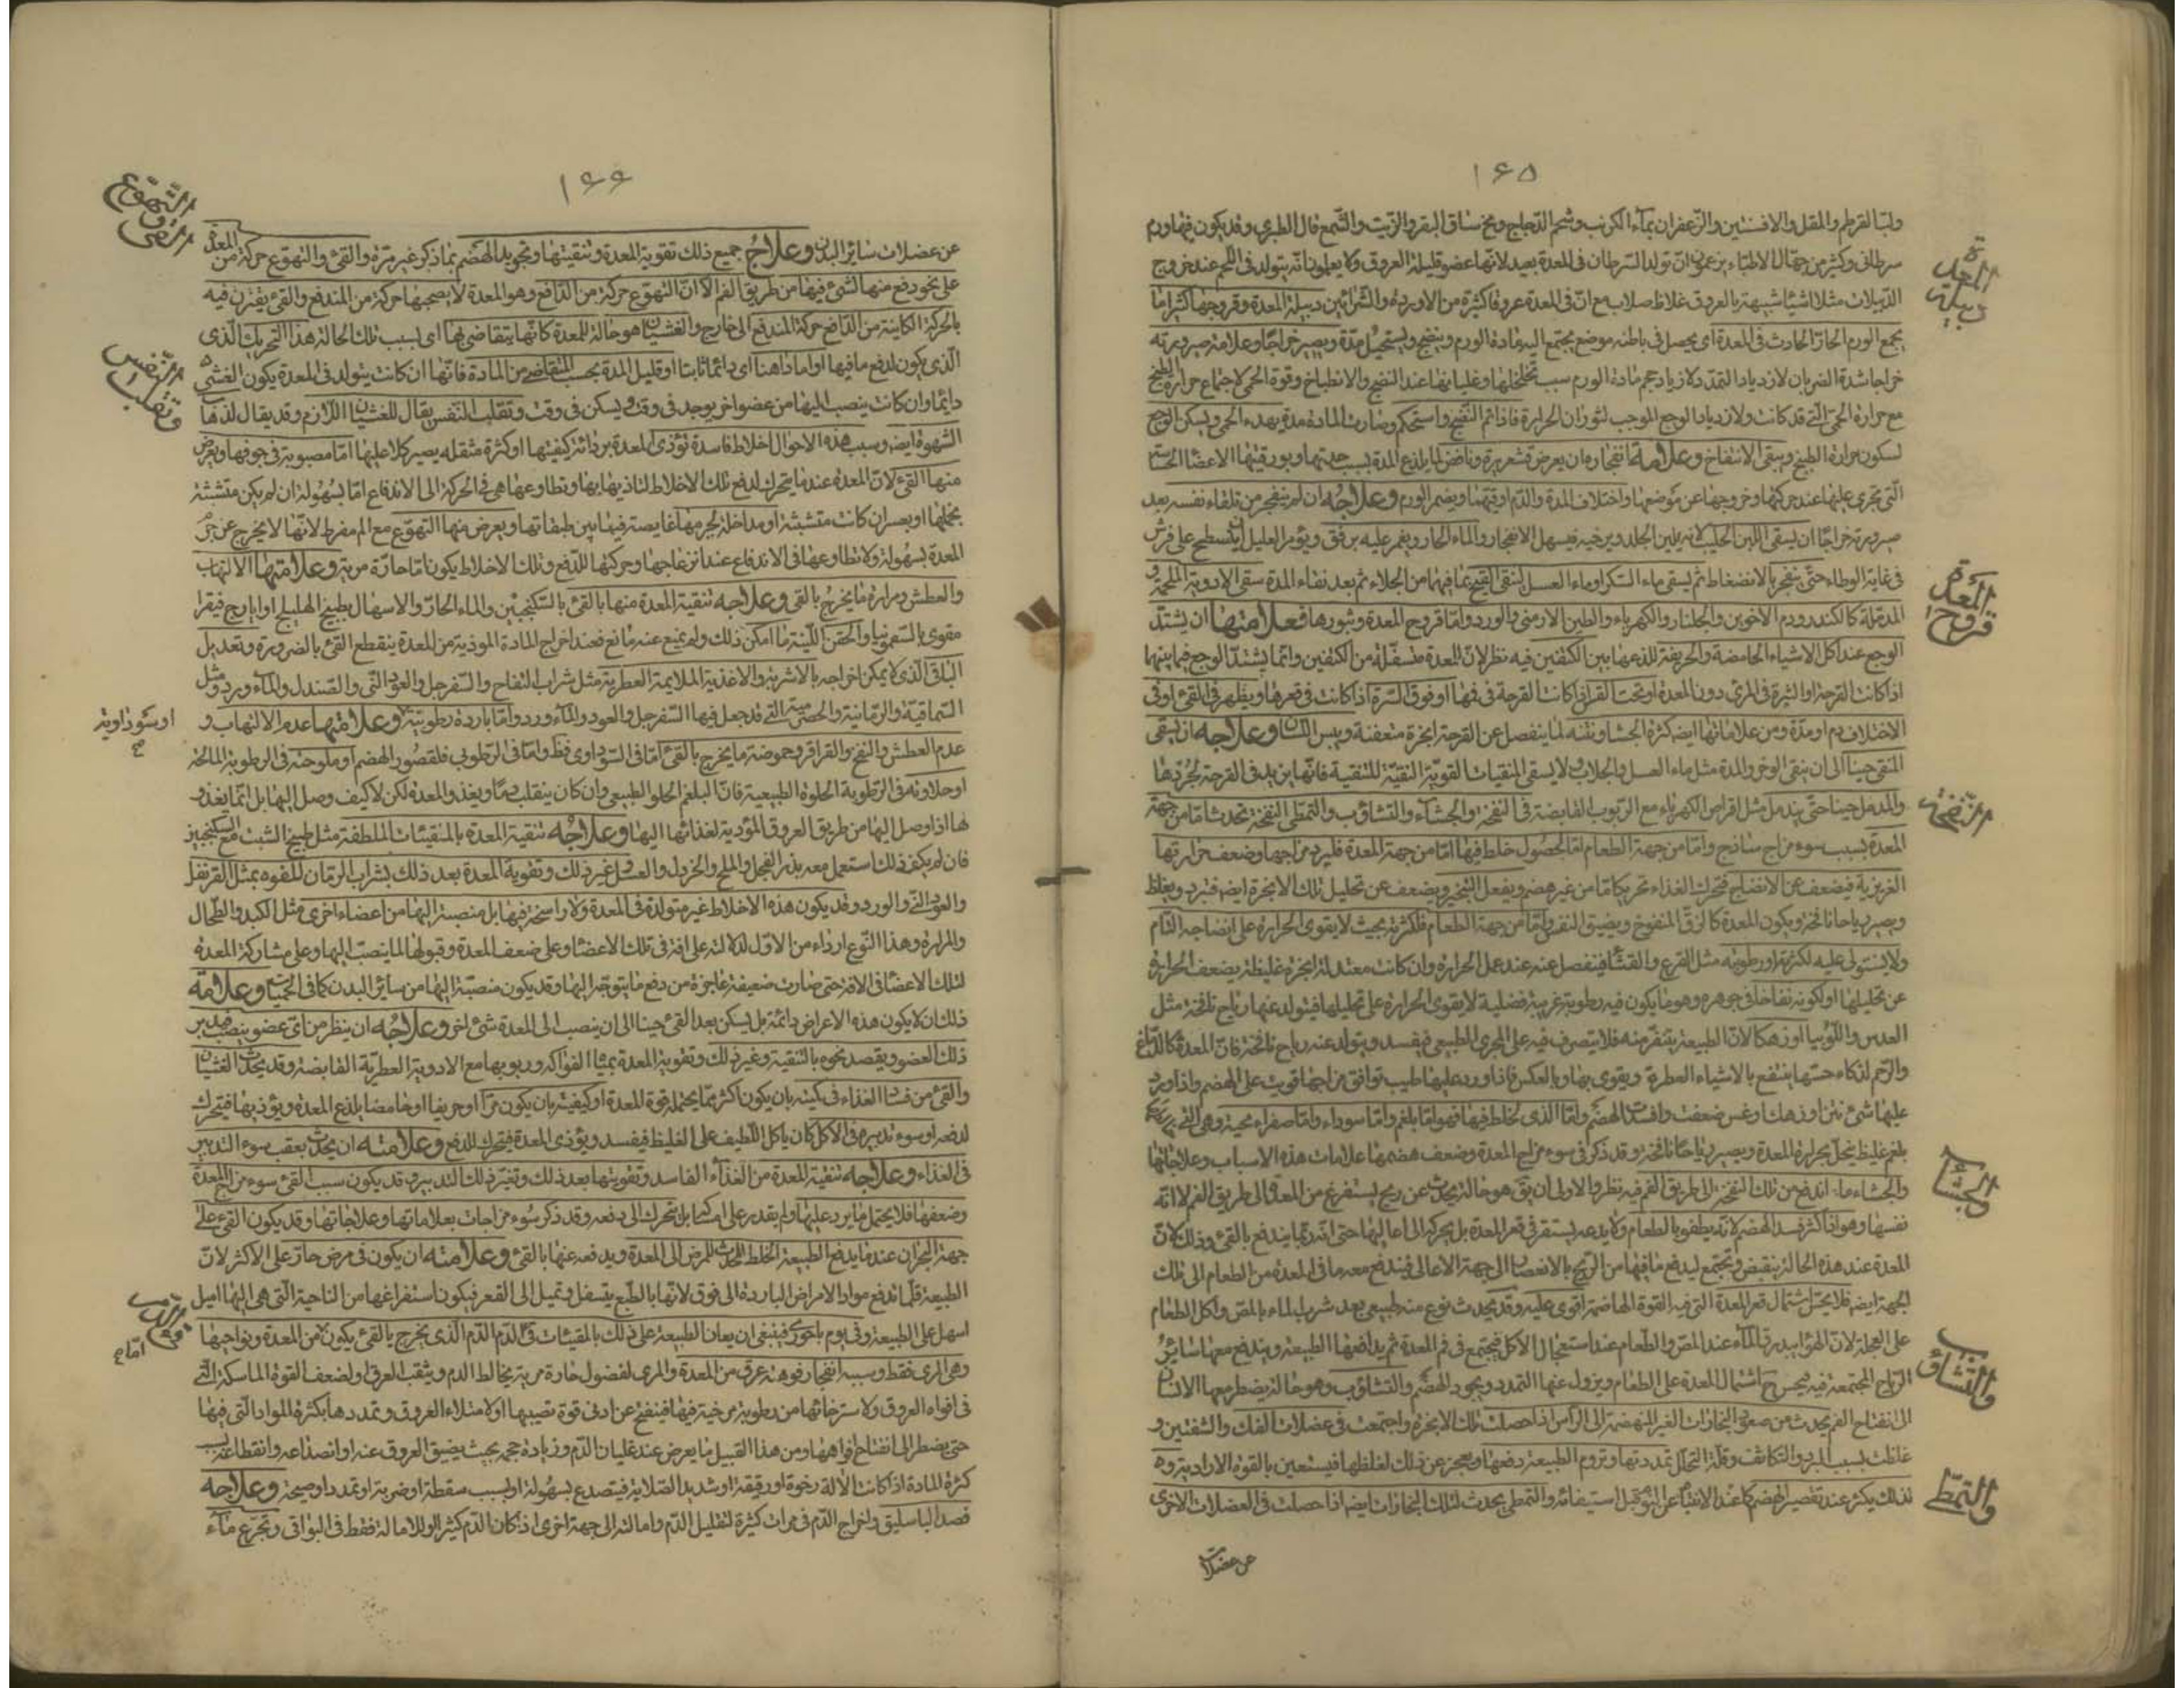 ١٦٥
ولب القرطم والمقل والافسنتين والزعفران بماء الكرنب وشحم الدجاج ومخ ساق البقر والزيت والشمع قال الطبري وقد يكون فيها ورم
سرطانى وكثير من جهال الاطباء يزعمون ان تولد السرطان فى المعدة بعيد لانها عضو قليلة العروق ولا يعلمون انه يتولد فى اللحم عند خروج
الدبيلات مثلا اشياء شبيهة بالعروق غلاظ صلاب مع ان فى المعدة عروقا كثيرة من الاوردة والشرائين دبيلة المعدة وقروحها كثيرا ما
دبيلة المعدة
يجمع الورم الحار الحادث فى المعدة اى يحصل فى باطنه موضع يجتمع اليه مادة الورم وينضج ويستحيل مدة ويصير خراجا وعلامة صيرورته
خراجا شدة الضربان لازدياد التمدد لازدياد حجم مادة الورم بسبب تخلخلها وغليانها عند النضج والانطباخ وقوة الحمى لاجتماع حرارة الطبخ
مع حرارة الحمى التى قد كانت ولازدياد الوجع الموجب لثوران الحرارة فاذا تم النضج واستحكم وصارت المادة مدة يهدء الحمى ويسكن الوجع
لسكون حرارة الطبخ ويبقى الانتفاخ وعلامة انفجاره ان يعرض قشعريرة ونافض لما يلذع المدة بسبب حدتها وبورقيتها الاعضاء الحساسة
التى تجرى عليها عند حركتها وخروجها عن موضعها واختلاف المدة والدم او قيئها ويضمر الورم وعلاجه ان لم ينفجر من تلقاء نفسه بعد
صيرورته خراجا ان يسقى اللبن الحليب لانه يلين الجلد ويرخيه فيسهل الانفجار والماء الحار ويغمر عليه برفق ويؤمر العليل ان يتسطح على فرش
فى غاية الوطاء حتى ينفجر بالانضغاط ثم يسقى ماء السكر او ماء العسل لينقى القيح بما فيهما من الجلاء ثم بعد نقاء المدة سقى الادوية الملحمة و
المدملة كالكندر ودم الاخوين والجلنار والكهرباء والطين الارمنى والورد واما قروح المعدة وبثورها فعلامتها ان يشتد
قروح المعدة
الوجع عند اكل الاشياء الحامضة والحريفة للذعها بين الكتفين فيه نظر لان المعدة متسفلة من الكتفين وانما يشتد الوجع فيما بينهما
اذا كانت القرحة او البثرة فى المرئ دون المعدة او تحت القص اذا كانت القرحة فى فمها او فوق السرة اذا كانت فى قعرها ويظهر فى القئ او فى
الاختلاف دم او مدة ومن علاماتها ايضا كثرة الجشاء ونتنه لما ينفصل عن القرحة ابخرة متعفنة ويبس اللسان وعلاجه ان يسقى
المنقى حينا الى ان ينقى الوضر والمدة مثل ماء العسل والجلاب ولا يسقى المنقيات القوية النقية للتنقية فانها يزيد فى القرحة لجردها
والمدمل حينا حتى يندمل مثل اقراص الكهرباء مع الربوب القابضة فى النفخة والجشاء والتثاؤب والتمطى النفخة تحدث اما من جهة
النفخة
المعدة بسبب سوء مزاج ساذج واما من جهة الطعام اما لحصول خلط فيها اما من جهة المعدة فلبرد مزاجها وضعف حرارتها
الغريزية فيضعف عن الانضاج فتحرك الغذاء تحريكا ما من غير هضم ويفعل التبخير ويضعف عن تحليل تلك الابخرة ايضا فتبرد ويغلظ
ويصير رياحا نافخة ويكون المعدة كالزق المنفوخ ويضيق النفس واما من جهة الطعام فلكثرته بحيث لا يقوى الحرارة على انضاجه التام
ولا يستولى عليه لكثرته او رطوبته مثل القرع والقثاء فينفصل عنه عند عمل الحرارة وان كانت معتدلة ابخرة غليظة يضعف الحرارة
عن تحليلها او لكونه نفاخا فى جوهره وهو ما يكون فيه رطوبة غريبة فضلية لا يقوى الحرارة على تحليلها فيتولد عنها رياح نافخة مثل
العدس واللوبيا او زهكا لان الطبيعة يتنفر منه فلا يتصرف فيه على المجرى الطبيعى فيفسد ويتولد عنه رياح نافخة فان المعدة كالدماغ
والرحم لذكاء حسها ينتفع بالاشياء العطرة ويقوى بها وبالعكس فاذا ورد عليها طيب توافق مزاجها قويت على الهضم واذا ورد
عليها شئ نتن او زهك وغس ضعفت وافسد الهضم واما الذى لخلط فيها فهو اما بلغم واما سوداء واما صفراء محية وهى التى
بلغم غليظ يحلل بحرارة المعدة ويصير رياحا نافخة وقد ذكر فى سوء مزاج المعدة وضعف هضمها علامات هذه الاسباب وعلاجاتها
والجشاء ما اندفع من تلك النفخة الى طريق الفم فيه نظر والاولى ان يق هو حالة يحدث عن ريح يستفرغ من المعدة الى طريق الفم لا انه
والجشاء
نفسها وهو اذا كثر فسد الهضم لانه يطفو بالطعام ولا يدعه يستقر فى قعر المعدة بل يحركه الى اعاليها حتى انه ربما يندفع بالقئ وذلك لان
المعدة عند هذه الحالة ينقبض وتجتمع ليدفع ما فيها من الريح بالانعصار الى جهة الاعالى فيندفع معه ما فى المعدة من الطعام الى تلك
الجهة ايضا فلا يحتل اشتمال قعر المعدة التى فيه القوة الهاضمة اقوى عليه وقد يحدث نوع منه طبيعى بعد شرب الماء بالمص واكل الطعام
على العجلة لان الهواء يبدرق الماء عند المص والطعام عند استعجال الاكل فيجتمع فى فم المعدة ثم يدافعها الطبيعة ويندفع معها سائر
والتثاؤب
الرياح المجتمعة فيه فيحسن ح اشتمال المعدة على الطعام ويزول عنها التمدد ويجود الهضم والتثاؤب وهو حالة يضطر معها الانسان
الى انفتاح الفم يحدث من صعود البخارات الغير المنهضمة الى الراس اذا حصلت تلك الابخرة واجتمعت فى عضلات الفك والشفتين و
غلظت بسبب البرد والتكاثف وقلة التحلل تمددتها وتروم الطبيعة دفعها ويعجز عن ذلك لغلظها فيستعين بالقوة الارادية وه
لذلك يكثر عند تقصير الهضم كما عند الانتباه عن النوم قبل استيفائه والتمطى يحدث لتلك البخارات ايضا اذا حصلت فى العضلات الاخرى
والتمطى
عن عضلات
١٦٦
عن عضلات سائر البدن وعلاج جميع ذلك تقوية المعدة وتنقيتها وتجويد الهضم بما ذكر غير مرة والقئ والتهوع حركة من المعدة
التهوع و القى
على نحو دفع منها لشئ فيها من طريق الفم الا ان التهوع حركة من الدافع وهو المعدة لا يصحبها حركة من المندفع والقئ يقترن فيه
بالحركة الكاينة من الدافع حركة المندفع الى خارج والغشيان هو حالة للمعدة كانها يتقاضى بها اى بسبب تلك الحالة هذا التحريك الذى
الذى يكون لدفع ما فيها او اما داهنا اى دائما ثابتا او قليل المدة بحسب المتقاضى من المادة فانها ان كانت يتولد فى المعدة يكون الغشى
وتقلب النفس
دائما وان كانت ينصب اليها من عضو اخر يوجد فى وقت ويسكن فى وقت وتقلب النفس يقال للغثيان اللازم وقد يقال لذهاب
الشهوة ايضا وسبب هذه الاحوال اخلاط فاسدة تؤذى المعدة برداءة كيفيتها او كثرة مثقلة يصير كلا عليها اما مصبوبة فى جوفها ويعرض
منها القئ لان المعدة عندما يتحرك لدفع تلك الاخلاط لتاذيها بها وتطاوعها هى فى الحركة الى الاندفاع اما بسهولة ان لم يكن متشبثة
بخملها او بعسر ان كانت متشبثة او مداخلة لجرمها غايصة فيما بين طبقاتها ويعرض منها التهوع مع الم مفرط لانها لا يخرج عن جرم
المعدة بسهولة ولا تطاوعها فى الاندفاع عند انزعاجها وحركتها للدفع وتلك الاخلاط يكون اما حارة مرية وعلامتها الالتهاب
والعطش ومرارة ما يخرج بالقى وعلاجه تنقية المعدة منها بالقئ بالسكنجبين والماء الحار والاسهال بطبيخ الهليلج او ايارج فيقرا
مقوى بالسقمونيا والحقن اللينة ما امكن ذلك ولم يمنع عنه مانع فعند اخراج المادة الموذية من المعدة ينقطع القئ بالضرورة وتعديل
الباقى الذى لا يمكن اخراجه بالاشربة والاغذية الملايمة العطرية مثل شراب التفاح والسفرجل والعود النى والصندل والماء ورد ومثل
السماقية والرمانية والحصرمية التى قد جعل فيها السفرجل والعود والماء ورد واما باردة رطوبية وعلامتها عدم الالتهاب و
او سوداوية صح
عدم العطش والنفخ والقراقر وحموضة ما يخرج بالقئ اما فى السوداوى فظ واما فى الرطوبى فلقصور الهضم او ملوحته فى الرطوبة المالحة
او حلاوته فى الرطوبة الحلوة الطبيعية فان البلغم الحلو الطبيعى وان كان ينقلب دما ويغذو المعدة لكن لا كيف وصل اليها بل انما يغذو
ها اذا وصل اليها من طريق العروق المؤدية لغذائها اليها وعلاجه تنقية المعدة بالمنقيات الملطفة مثل طبيخ الشبت مع السكنجبين
فان لم يكف ذلك استعمل معه بذر الفجل والملح والخردل والعسل وغير ذلك وتقوية المعدة بعد ذلك بشراب الرمان المفوه بمثل القرنفل
والعود النى والورد وقد يكون هذه الاخلاط غير متولدة فى المعدة ولا راسخة فيها بل منصبة اليها من اعضاء اخرى مثل الكبد والطحال
والمرارة وهذا النوع ارداء من الاول لدلالته على افة فى تلك الاعضاء وعلى ضعف المعدة وقبولها لما ينصب اليها وعلى مشاركة المعدة
لتلك الاعضاء فى الافة حتى صارت ضعيفة عاجزة من دفع ما يتوجه اليها وقد يكون منصبة اليها من سائر البدن كما فى الحميات وعلامة
ذلك ان لا يكون هذه الاعراض دائمة بل يسكن بعد القئ حينا الى ان ينصب الى المعدة شئ اخر وعلاجه ان ينظر من اى عضو ينصب فيدبر
ذلك العضو ويقصد نحوه بالتنقية وغير ذلك وتقوية المعدة بمياه الفواكه وربوبها مع الادوية العطرية القابضة وقد يحدث الغثيان
والقئ من فساد الغذاء فى كميته بان يكون اكثر مما يحتمله قوة المعدة او كيفيته بان يكون مرا او حريفا او حامضا يلذع المعدة ويؤذيها فيتحرك
لدفعه او سوء تدبيره فى الاكل كان ياكل اللطيف على الغليظ فيفسد ويؤذى المعدة فيتحرك للدفع وعلامته ان يحدث بعقب سوء التدبير
فى الغذاء وعلاجه تنقية المعدة من الغذاء الفاسد وتقويتها بعد ذلك وتغير ذلك التدبير وقد يكون سبب القئ سوء مزاج المعدة
وضعفها فلا يحتمل ما يرد عليها ولم يقدر على امساكه بل يتحرك الى دفعه وقد ذكر سوء مزاجات بعلاماتها وعلاجاتها وقد يكون القئ على
جهة البحران عندما يدفع الطبيعة الخلط المحدث للمرض الى المعدة ويدفعه عنها بالقئ وعلامته ان يكون فى مرض حاد على الاكثر لان
الطبيعة قلما تدفع مواد الامراض الباردة الى فوق لانها بالطبع يتسفل وتميل الى القعر فيكون استفراغها من الناحية التى هى اليها اميل
اسهل على الطبيعة وفى يوم باحورى فينبغى ان يعان الطبيعة على ذلك بالمقيئات قئ الدم الدم الذى يخرج بالقئ يكون من المعدة ونواحيها
قئ الدم
اما صح
وهى المرى فقط وسببه انفجار فوهة عرق من المعدة والمرى لفضول حادة مرية يخالط الدم ويثقب العرق او لضعف القوة الماسكة التى
فى افواه العروق ولاسترخائها من رطوبة مرخية فيها فينفتح عن ادنى قوة تصيبها او لامتلاء العروق وتمددها بكثرة المواد التى فيها
حتى يضطر الى انفتاح افواهها ومن هذا القبيل ما يعرض عند غليان الدم وزيادة حجمه بحيث يضيق العروق عنه او انصداعه وانقطاعه بسبب
كثرة المادة اذا كانت الالة رخوة او رقيقة او شديد الصلابة فيتصدع بسهولة او بسبب سقطة او ضربة او تمدد او صيحة وعلاجه
فصد الباسليق واخراج الدم فى مرات كثيرة لتقليل الدم وامالته الى جهة اخرى اذا كان الدم كثيرا وللامالة فقط فى البواقى وتجرع ماء